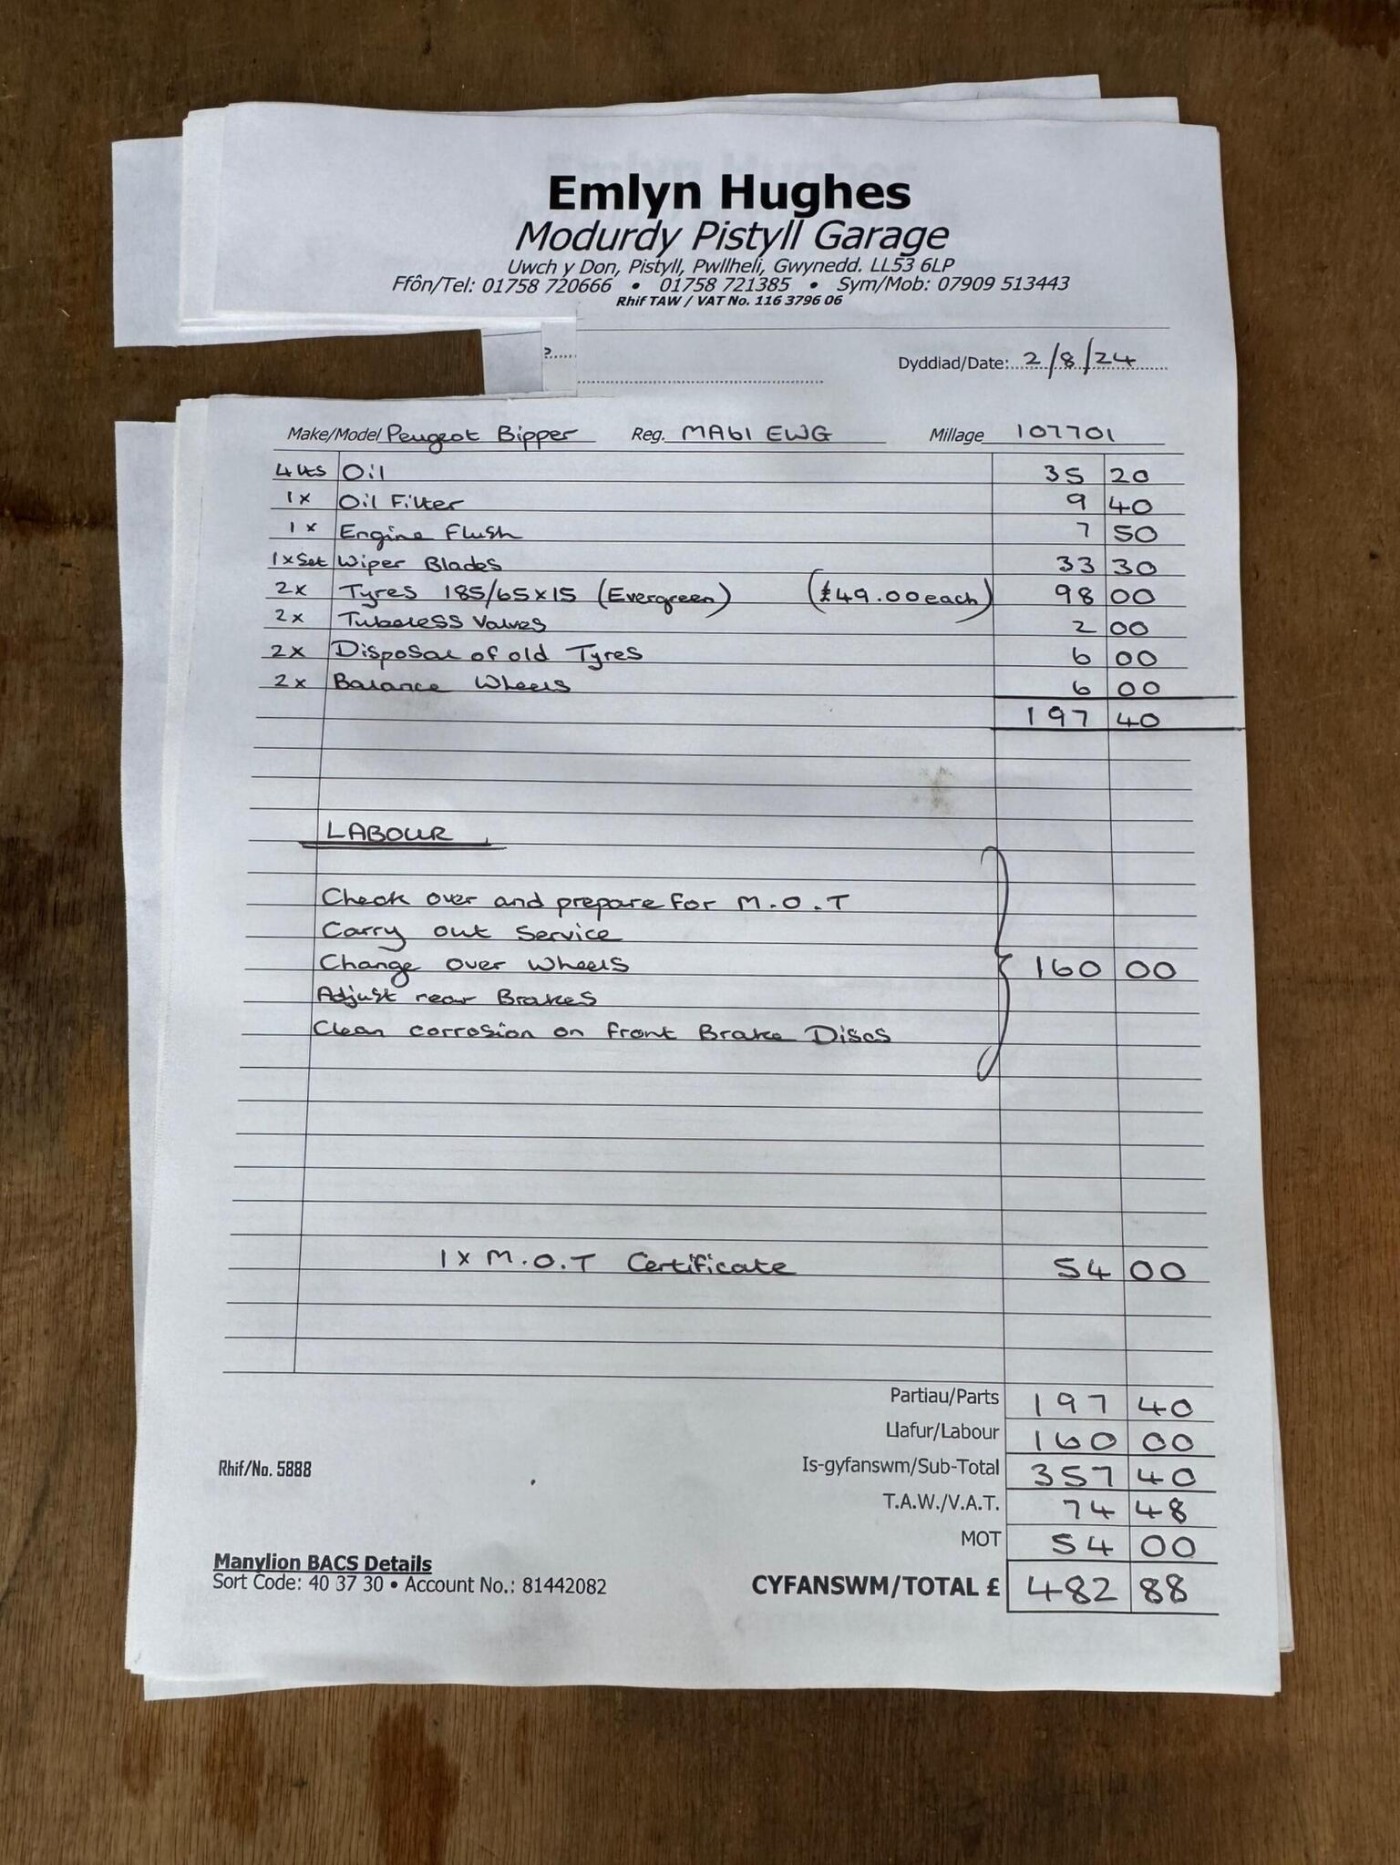 Emlyn Hughes
Modurdy Pistyll Garage
Uwch y Don, Pistyll, Pwllheli, Gwynedd. LL53 6LP
Ffôn/Tel: 01758 720666 • 01758 721385 • Sym/Mob: 07909 513443
Rhif TAW / VAT No. 116 3796 06
Dyddiad/Date: 2/8/24
Make/Model Peugeot Bipper Reg. MA61 EWG Millage 107701
4 Lts Oil 35 20
1x Oil Filter 9 40
1x Engine Flush 7 50
1x Set Wiper Blades 33 30
2x Tyres 185/65x15 (Evergreen) (£49.00 each) 98 00
2x Tubeless Valves 2 00
2x Disposal of old Tyres 6 00
2x Balance Wheels 6 00
197 40
LABOUR
Check over and prepare for M.O.T
Carry out Service
Change over Wheels 160 00
Adjust rear Brakes
Clean corrosion on front Brake Discs
1x M.O.T Certificate 54 00
Partiau/Parts 197 40
Llafur/Labour 160 00
Is-gyfanswm/Sub-Total 357 40
Rhif/No. 5888
T.A.W./V.A.T. 74 48
MOT 54 00
Manylion BACS Details
Sort Code: 40 37 30 • Account No.: 81442082
CYFANSWM/TOTAL £ 482 88